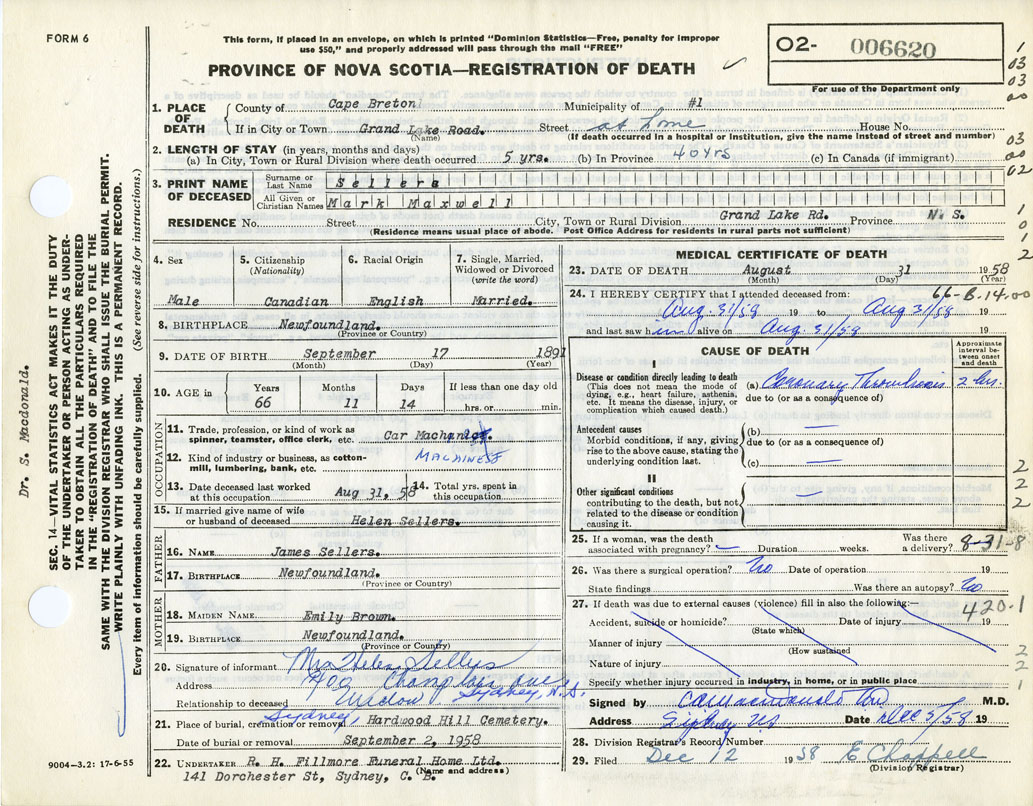 FORM 6
This form, if placed in an envelope, on which is printed "Dominion Statistics—Free, penalty for improper
use $50," and properly addressed will pass through the mail "FREE"
PROVINCE OF NOVA SCOTIA—REGISTRATION OF DEATH
O2- 006620
For use of the Department only
1. PLACE OF DEATH
County of Cape Breton Municipality of #1
If in City or Town Grand Lake Road. Street at home House No.
(Name) (If death occurred in a hospital or institution, give the name instead of street and number)
2. LENGTH OF STAY (in years, months and days)
(a) In City, Town or Rural Division where death occurred 5 yrs. (b) In Province 40 yrs (c) In Canada (if immigrant)
3. PRINT NAME OF DECEASED
Surname or Last Name Sellers
All Given or Christian Names Mark Maxwell
RESIDENCE No. Street City, Town or Rural Division Grand Lake Rd. Province N. S.
(Residence means usual place of abode. Post Office Address for residents in rural parts not sufficient)
4. Sex
Male
5. Citizenship
(Nationality)
Canadian
6. Racial Origin
English
7. Single, Married,
Widowed or Divorced
(write the word)
Married.
8. BIRTHPLACE Newfoundland.
(Province or Country)
9. DATE OF BIRTH September 17 1891
(Month) (Day) (Year)
10. AGE in
Years Months Days If less than one day old
66 11 14 hrs. or min.
OCCUPATION
11. Trade, profession, or kind of work as
spinner, teamster, office clerk, etc. Car
12. Kind of industry or business, as cotton-
mill, lumbering, bank, etc.
13. Date deceased last worked
at this occupation Aug 31, 58
14. Total yrs. spent in
this occupation
15. If married give name of wife
or husband of deceased Helen Sellers.
FATHER
16. NAME James Sellers.
17. BIRTHPLACE Newfoundland.
(Province or Country)
MOTHER
18. MAIDEN NAME Emily Brown.
19. BIRTHPLACE Newfoundland.
(Province or Country)
20. Signature of informant Mrs Helen Sellers
Address Sydney, N.S.
Relationship to deceased Widow
21. Place of burial, cremation or removal Sydney, Hardwood Hill Cemetery.
Date of burial or removal September 2, 1958
22. UNDERTAKER R. H. Fillmore Funeral Home Ltd.
(Name and address)
141 Dorchester St, Sydney, C. B.
9004—3.2: 17-6-55
MEDICAL CERTIFICATE OF DEATH
23. DATE OF DEATH August 31 1958
(Month) (Day) (Year)
24. I HEREBY CERTIFY that I attended deceased from: 66-B-14.00
Aug. 31/58 19 to Aug 31/58 19
and last saw him alive on Aug 31/58 19
CAUSE OF DEATH
Approximate
interval be-
tween onset
and death
I
Disease or condition directly leading to death
(This does not mean the mode of
dying, e.g., heart failure, asthenia,
etc. It means the disease, injury, or
complication which caused death.)
(a) Coronary Thrombosis 2 hrs.
due to (or as a consequence of)
Antecedent causes
Morbid conditions, if any, giving
rise to the above cause, stating the
underlying condition last.
(b) —
due to (or as a consequence of)
(c) —
II
Other significant conditions
contributing to the death, but not
related to the disease or condition
causing it.
—
25. If a woman, was the death
associated with pregnancy? — Duration weeks.
Was there
a delivery?
8-31-8
26. Was there a surgical operation? No Date of operation 19
State findings Was there an autopsy? No
27. If death was due to external causes (violence) fill in also the following:—
420.1
Accident, suicide or homicide? Date of injury 19
(State which)
Manner of injury
(How sustained
Nature of injury
Specify whether injury occurred in industry, in home, or in public place
Signed by M.D.
Address Sydney NS Date Dec 5/58 19
28. Division Registrar's Record Number
29. Filed Dec 12 1958 E Chappell
(Division Registrar)
Dr. S. Macdonald.
SEC. 14—VITAL STATISTICS ACT MAKES IT THE DUTY
OF THE UNDERTAKER OR PERSON ACTING AS UNDER-
TAKER TO OBTAIN ALL THE PARTICULARS REQUIRED
IN THE "REGISTRATION OF DEATH" AND TO FILE THE
SAME WITH THE DIVISION REGISTRAR WHO SHALL ISSUE THE BURIAL PERMIT.
WRITE PLAINLY WITH UNFADING INK. THIS IS A PERMANENT RECORD.
Every item of information should be carefully supplied. (See reverse side for instructions.)